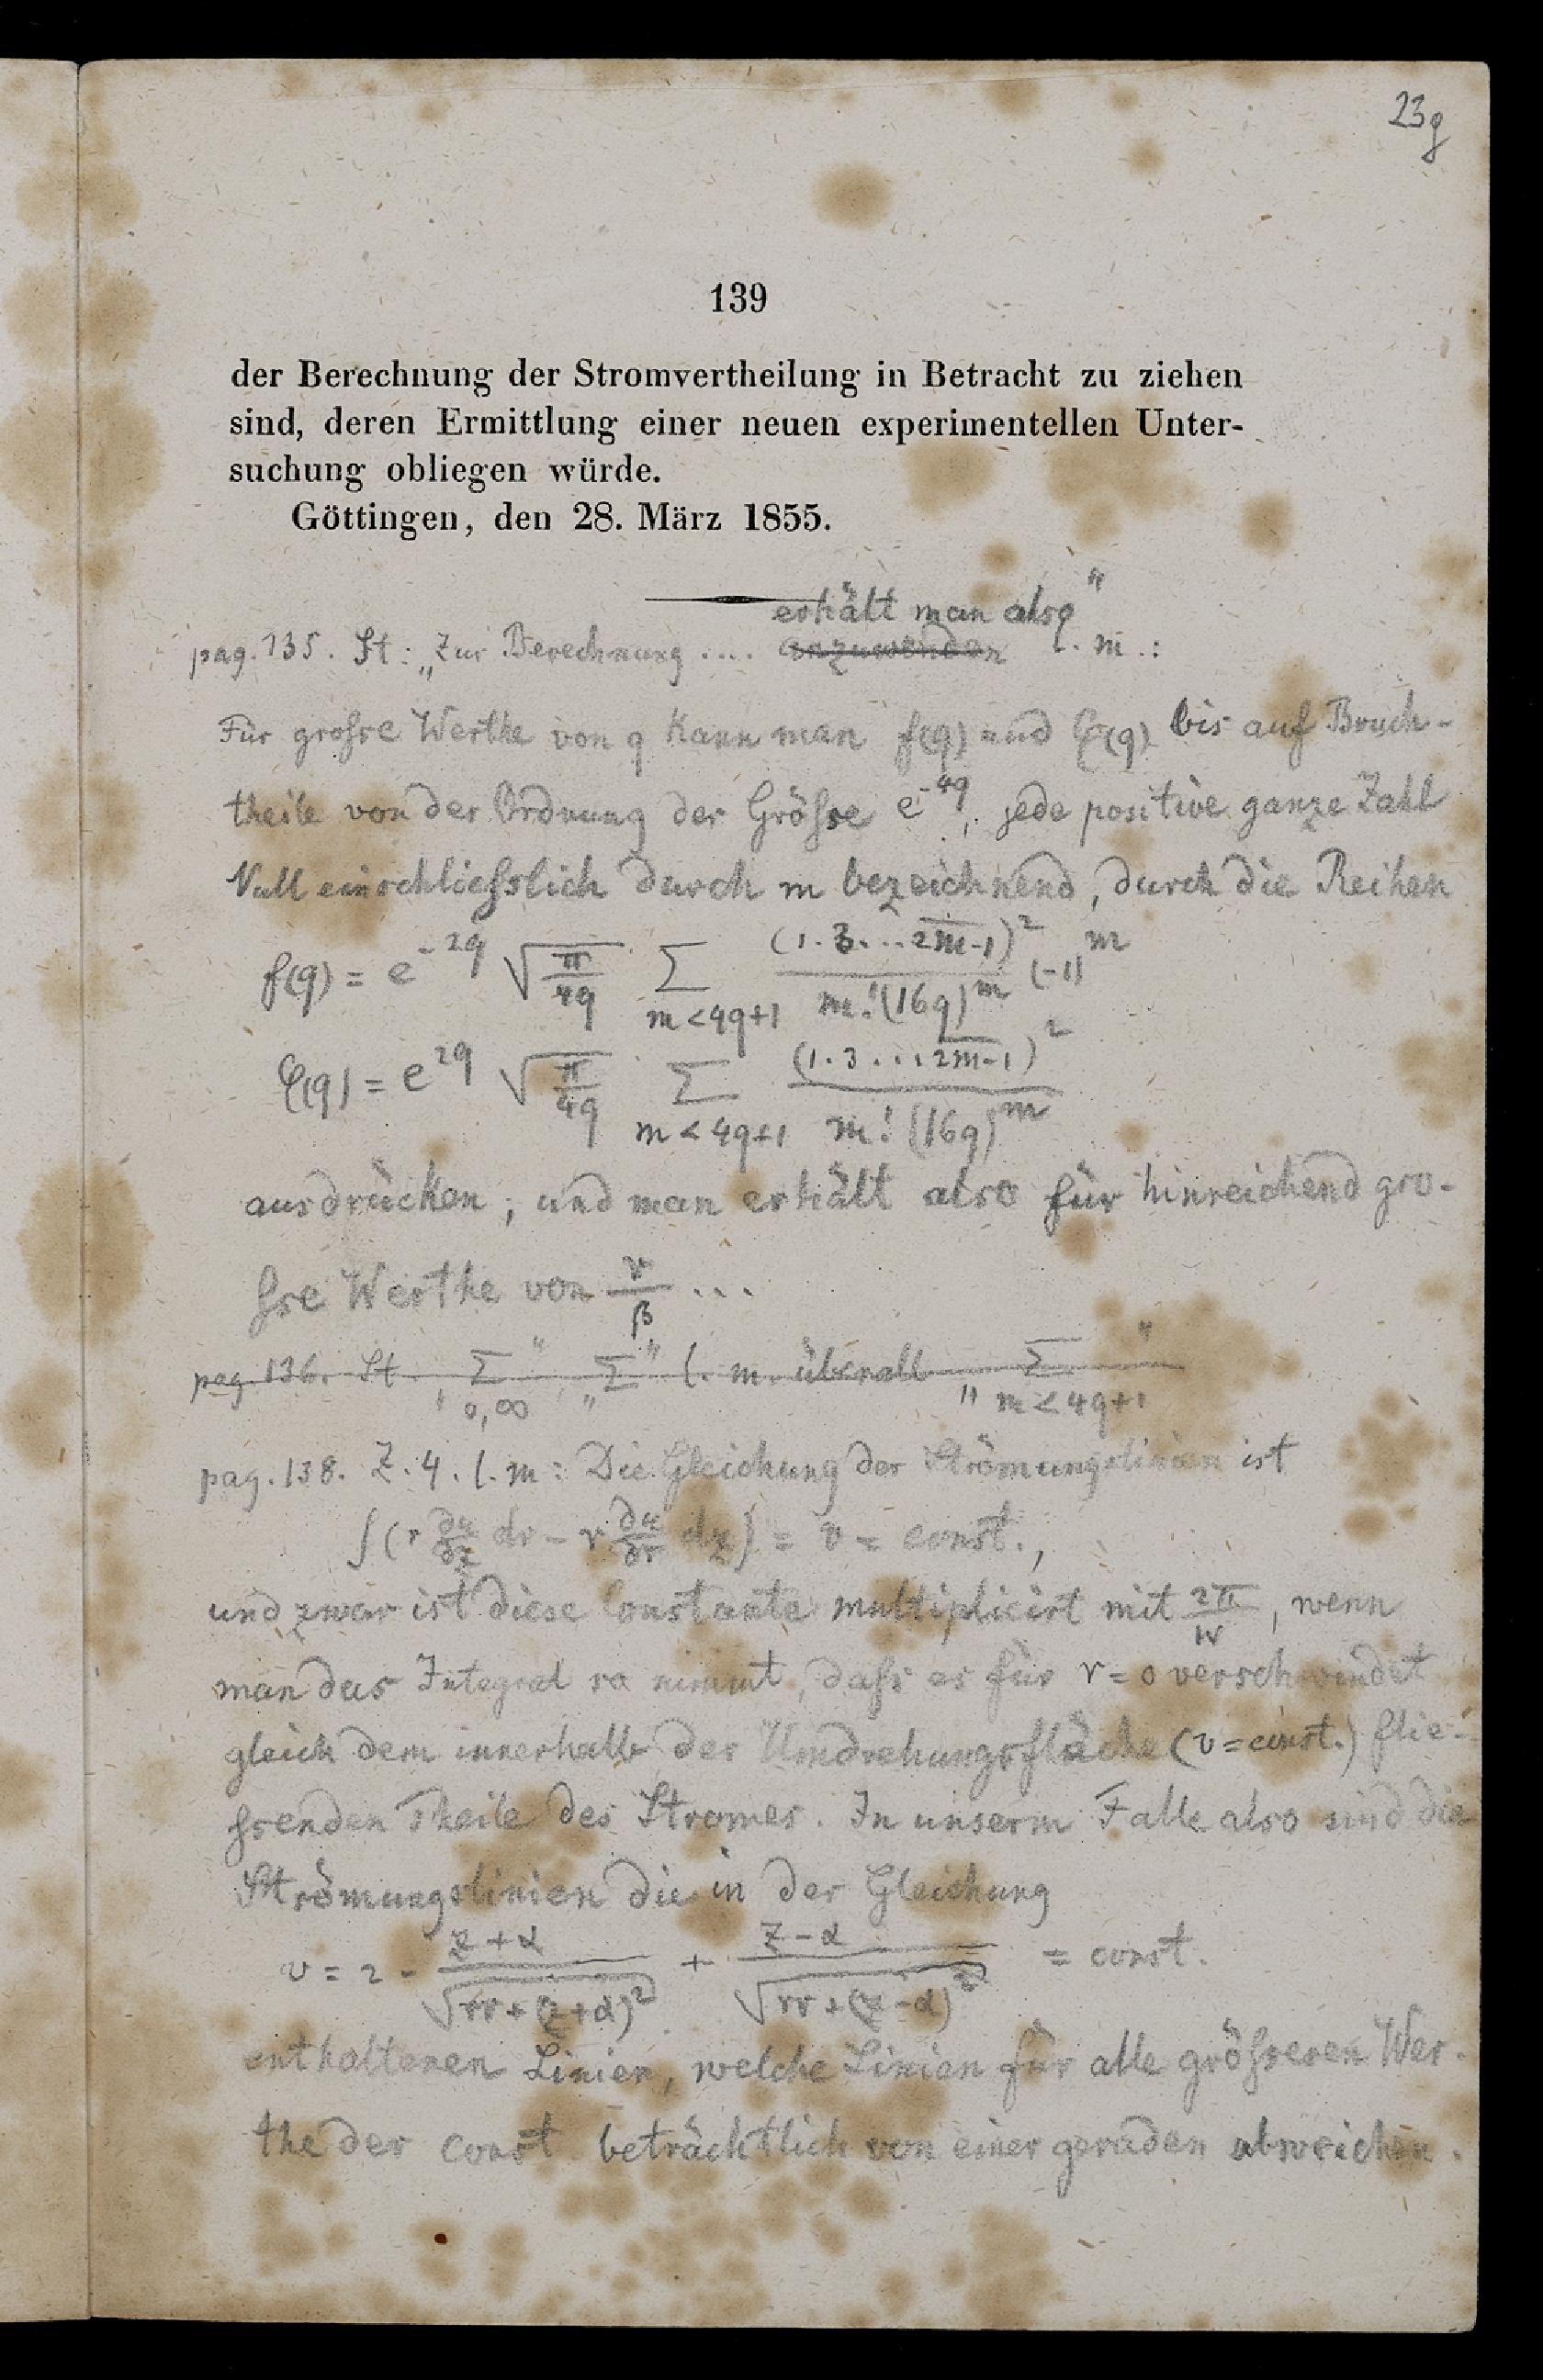 23g
139
der Berechnung der Stromvertheilung in Betracht zu ziehen
sind, deren Ermittlung einer neuen experimentellen Unter-
suchung obliegen würde.
Göttingen, den 28. März 1855.
erhält man also"
pag. 135. St: „Zur Berechnung .... anzuwenden l. m.:
Für grosse Werthe von q kann man f(q) und φ(q) bis auf Bruch-
theile von der Ordnung der Grösse e^{-4q}, jede positive ganze Zahl
Null einschliesslich durch m bezeichnend, durch die Reihen
f(q) = e^{-2q} √(π/4q) Σ_{m<4q+1} (1.3...2m-1)²/(m!(16q)^m) (-1)^m
φ(q) = e^{2q} √(π/4q) Σ_{m<4q+1} (1.3...2m-1)²/(m!(16q)^m)
ausdrücken; und man erhält also für hinreichend gro-
sse Werthe von r/β ...
pag. 136. St. „Σ_{0,∞}", „Σ" l. m. überall „Σ_{m<4q+1}"
pag. 138. Z. 4. l. m: Die Gleichung der Strömungslinien ist
∫(r ∂u/∂z dr - r ∂u/∂r dz) = v = const.,
und zwar ist diese Constante multiplicirt mit 2π/w, wenn
man das Integral so nimmt, dass es für r=0 verschwindet
gleich dem innerhalb der Umdrehungsfläche (v=const.) flie-
ssenden Theile des Stromes. In unserm Falle also sind die
Strömungslinien die in der Gleichung
v = 2 - (z+α)/√(rr+(z+α)²) + (z-α)/√(rr+(z-α)²) = const.
enthaltenen Linien, welche Linien für alle grösseren Wer-
the der const beträchtlich von einer geraden abweichen.